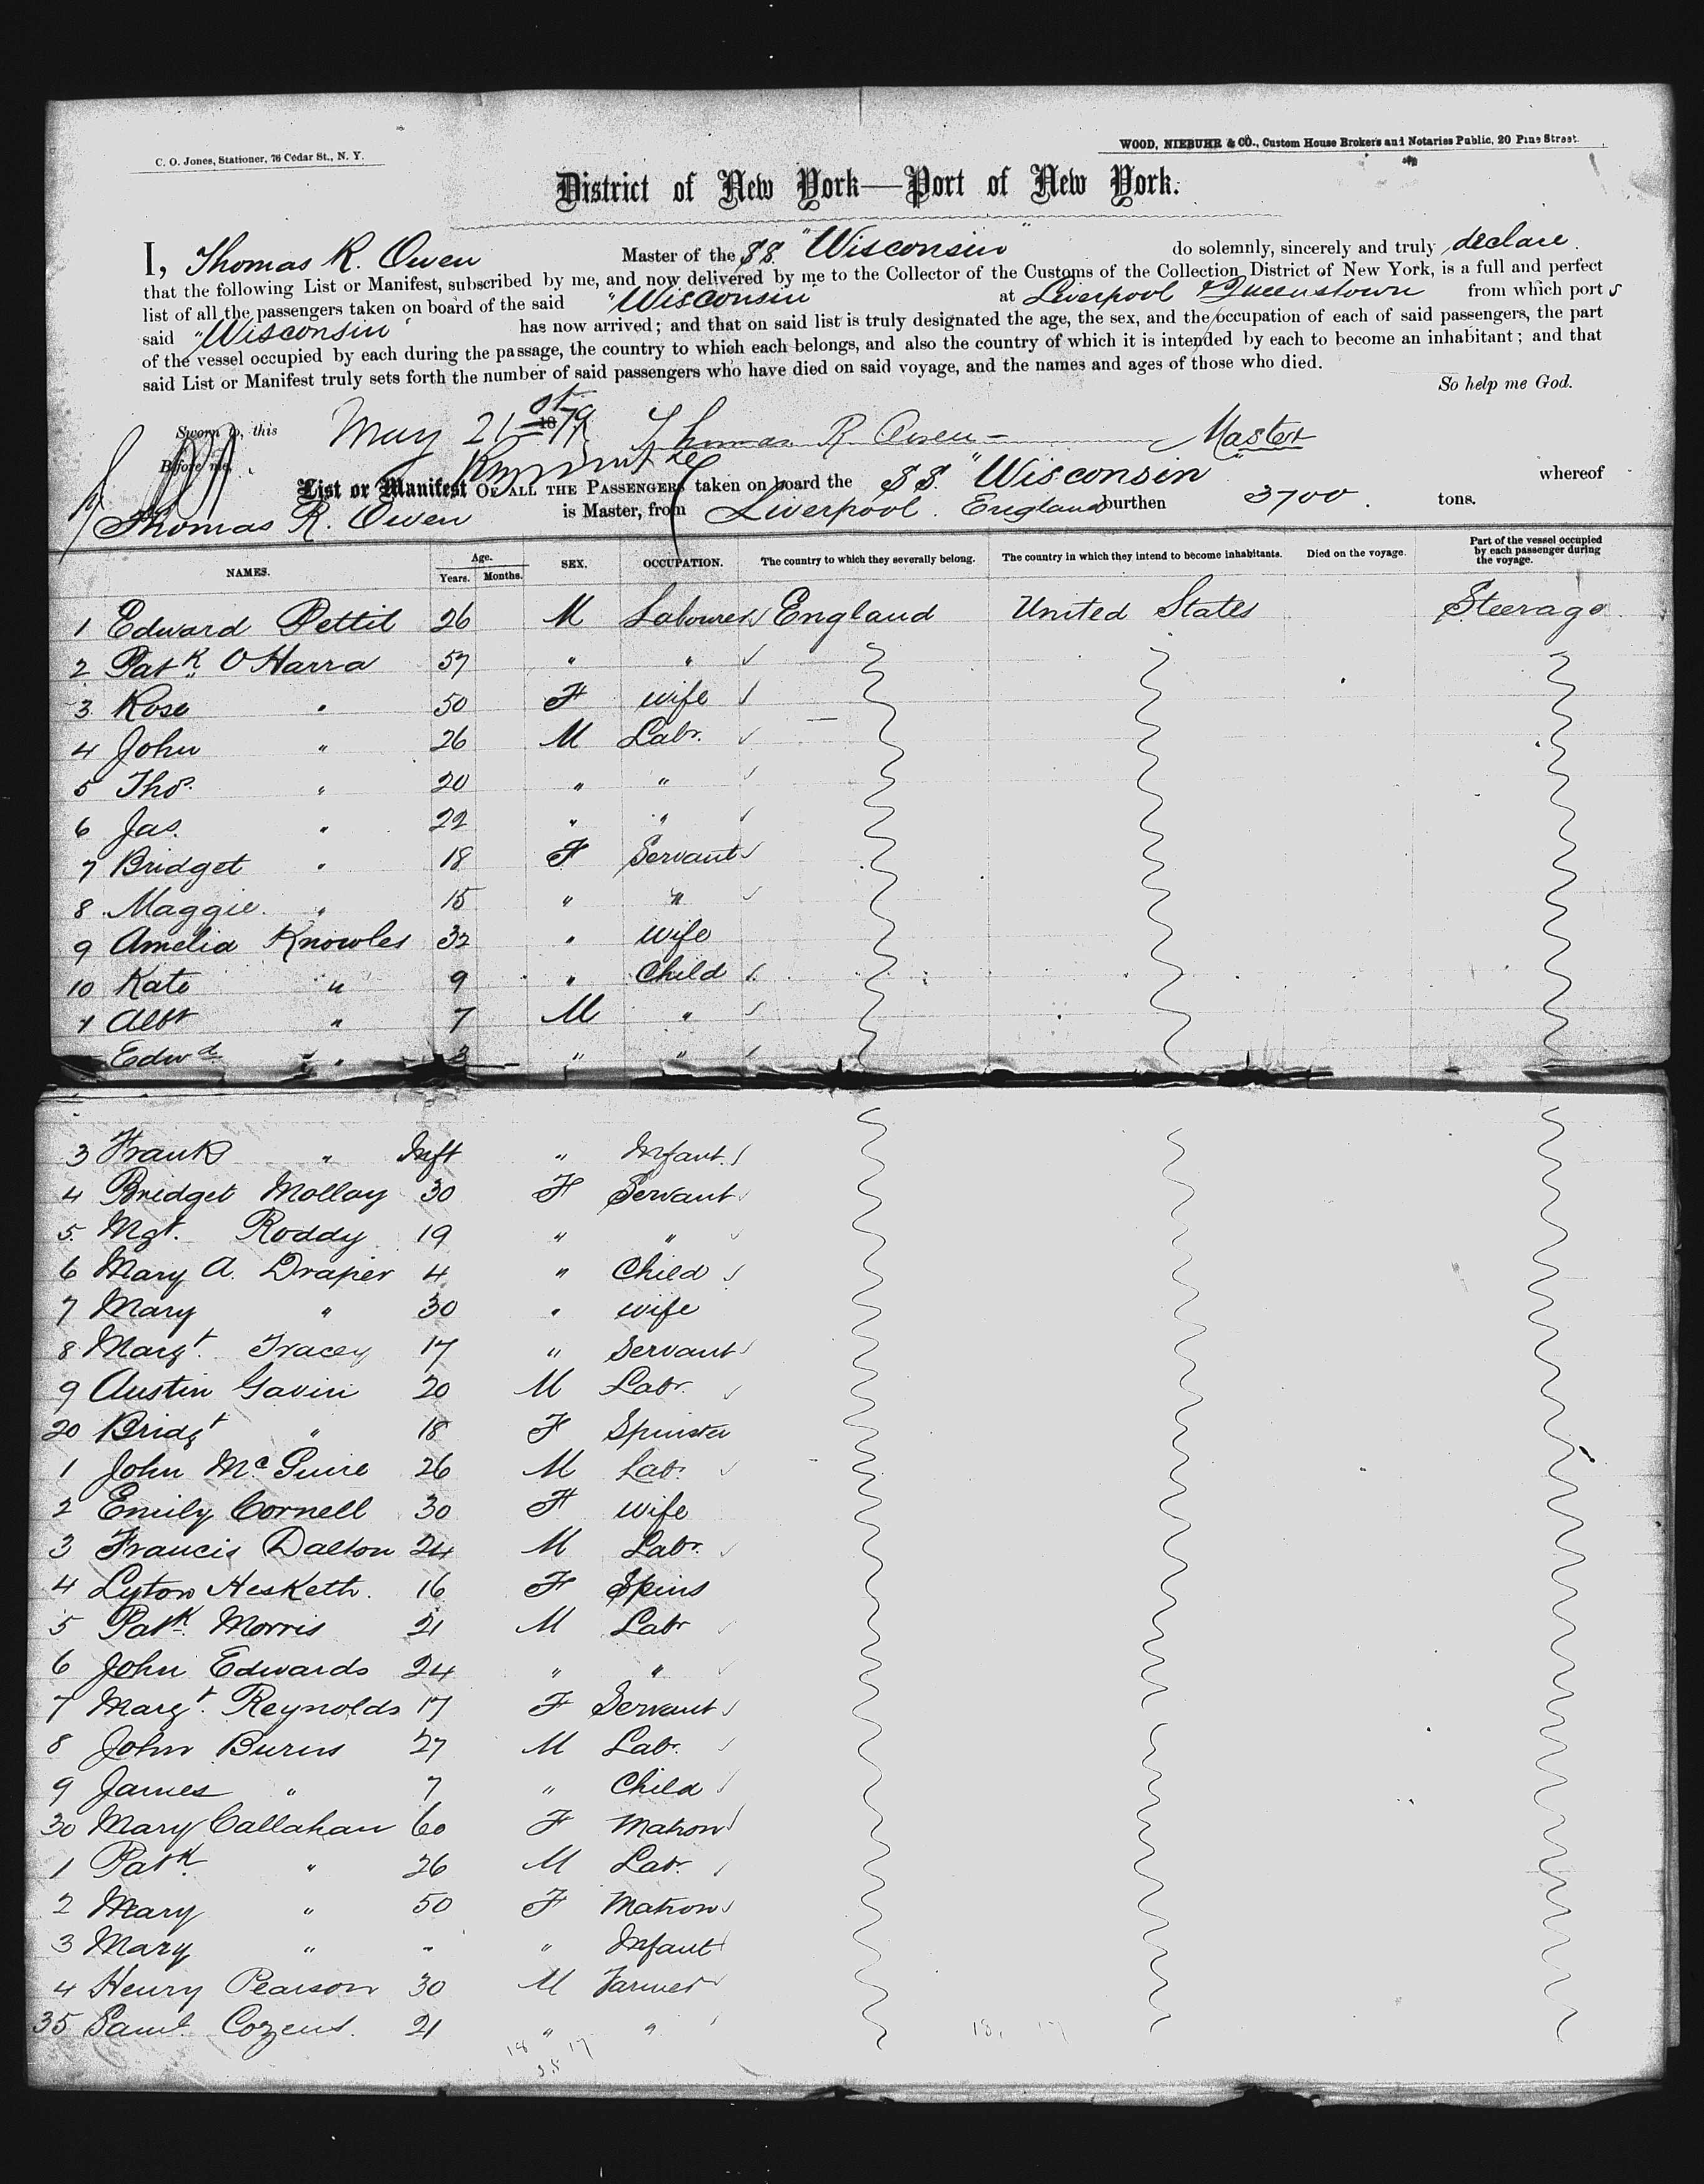 C. O. Jones, Stationer, 76 Cedar St., N. Y.
WOOD, NIEBUHR & CO., Custom House Brokers and Notaries Public, 20 Pine Street.
District of New York—Port of New York.
I, Thomas R. Owen Master of the SS "Wisconsin" do solemnly, sincerely and truly declare.
that the following List or Manifest, subscribed by me, and now delivered by me to the Collector of the Customs of the Collection District of New York, is a full and perfect
list of all the passengers taken on board of the said "Wisconsin" at Liverpool & Queenstown from which port s
said "Wisconsin" has now arrived; and that on said list is truly designated the age, the sex, and the occupation of each of said passengers, the part
of the vessel occupied by each during the passage, the country to which each belongs, and also the country of which it is intended by each to become an inhabitant; and that
said List or Manifest truly sets forth the number of said passengers who have died on said voyage, and the names and ages of those who died.
So help me God.
Sworn to, this May 21st 1879 Thomas R. Owen - Master
Before me,
List or Manifest OF ALL THE PASSENGERS taken on board the SS "Wisconsin" whereof
Thomas R. Owen is Master, from Liverpool. England burthen 3700. tons.
NAMES. Age. Years. Months. SEX. OCCUPATION. The country to which they severally belong. The country in which they intend to become inhabitants. Died on the voyage. Part of the vessel occupied by each passenger during the voyage.
1 Edward Pettit 26 M Labourer England United States Steerage
2 Patk O Harra 57 " "
3 Rose " 50 F wife
4 John " 26 M Labr.
5 Thos. " 20 " "
6 Jas. " 22 " "
7 Bridget " 18 F Servant
8 Maggie " 15 " "
9 Amelia Knowles 32 " wife
10 Kate " 9 " Child
1 Albt " 7 M "
Edwd " 3 " "
3 Frank " Inft " Infant.
4 Bridget Molloy 30 F Servant
5 Mgt. Roddy 19 " "
6 Mary A. Draper 4 " Child
7 Mary " 30 " wife
8 Margt. Tracey 17 " Servant
9 Austin Gavin 20 M Labr.
20 Bridgt " 18 F Spinster
1 John McGuire 26 M Labr.
2 Emily Cornell 30 F wife
3 Francis Dalton 24 M Labr.
4 Lyton Hesketh. 16 F Spins
5 Patk. Morris 21 M Labr
6 John Edwards 24 " "
7 Margt. Reynolds 17 F Servant
8 John Burns 27 M Labr.
9 James " 7 " Child
30 Mary Callahan 60 F Matron
1 Patk. " 26 M Labr.
2 Mary " 50 F Matron
3 Mary " - " Infant
4 Henry Pearson 30 M Farmer
35 Saml. Cozens. 21 " "
18 17 18. 17
35